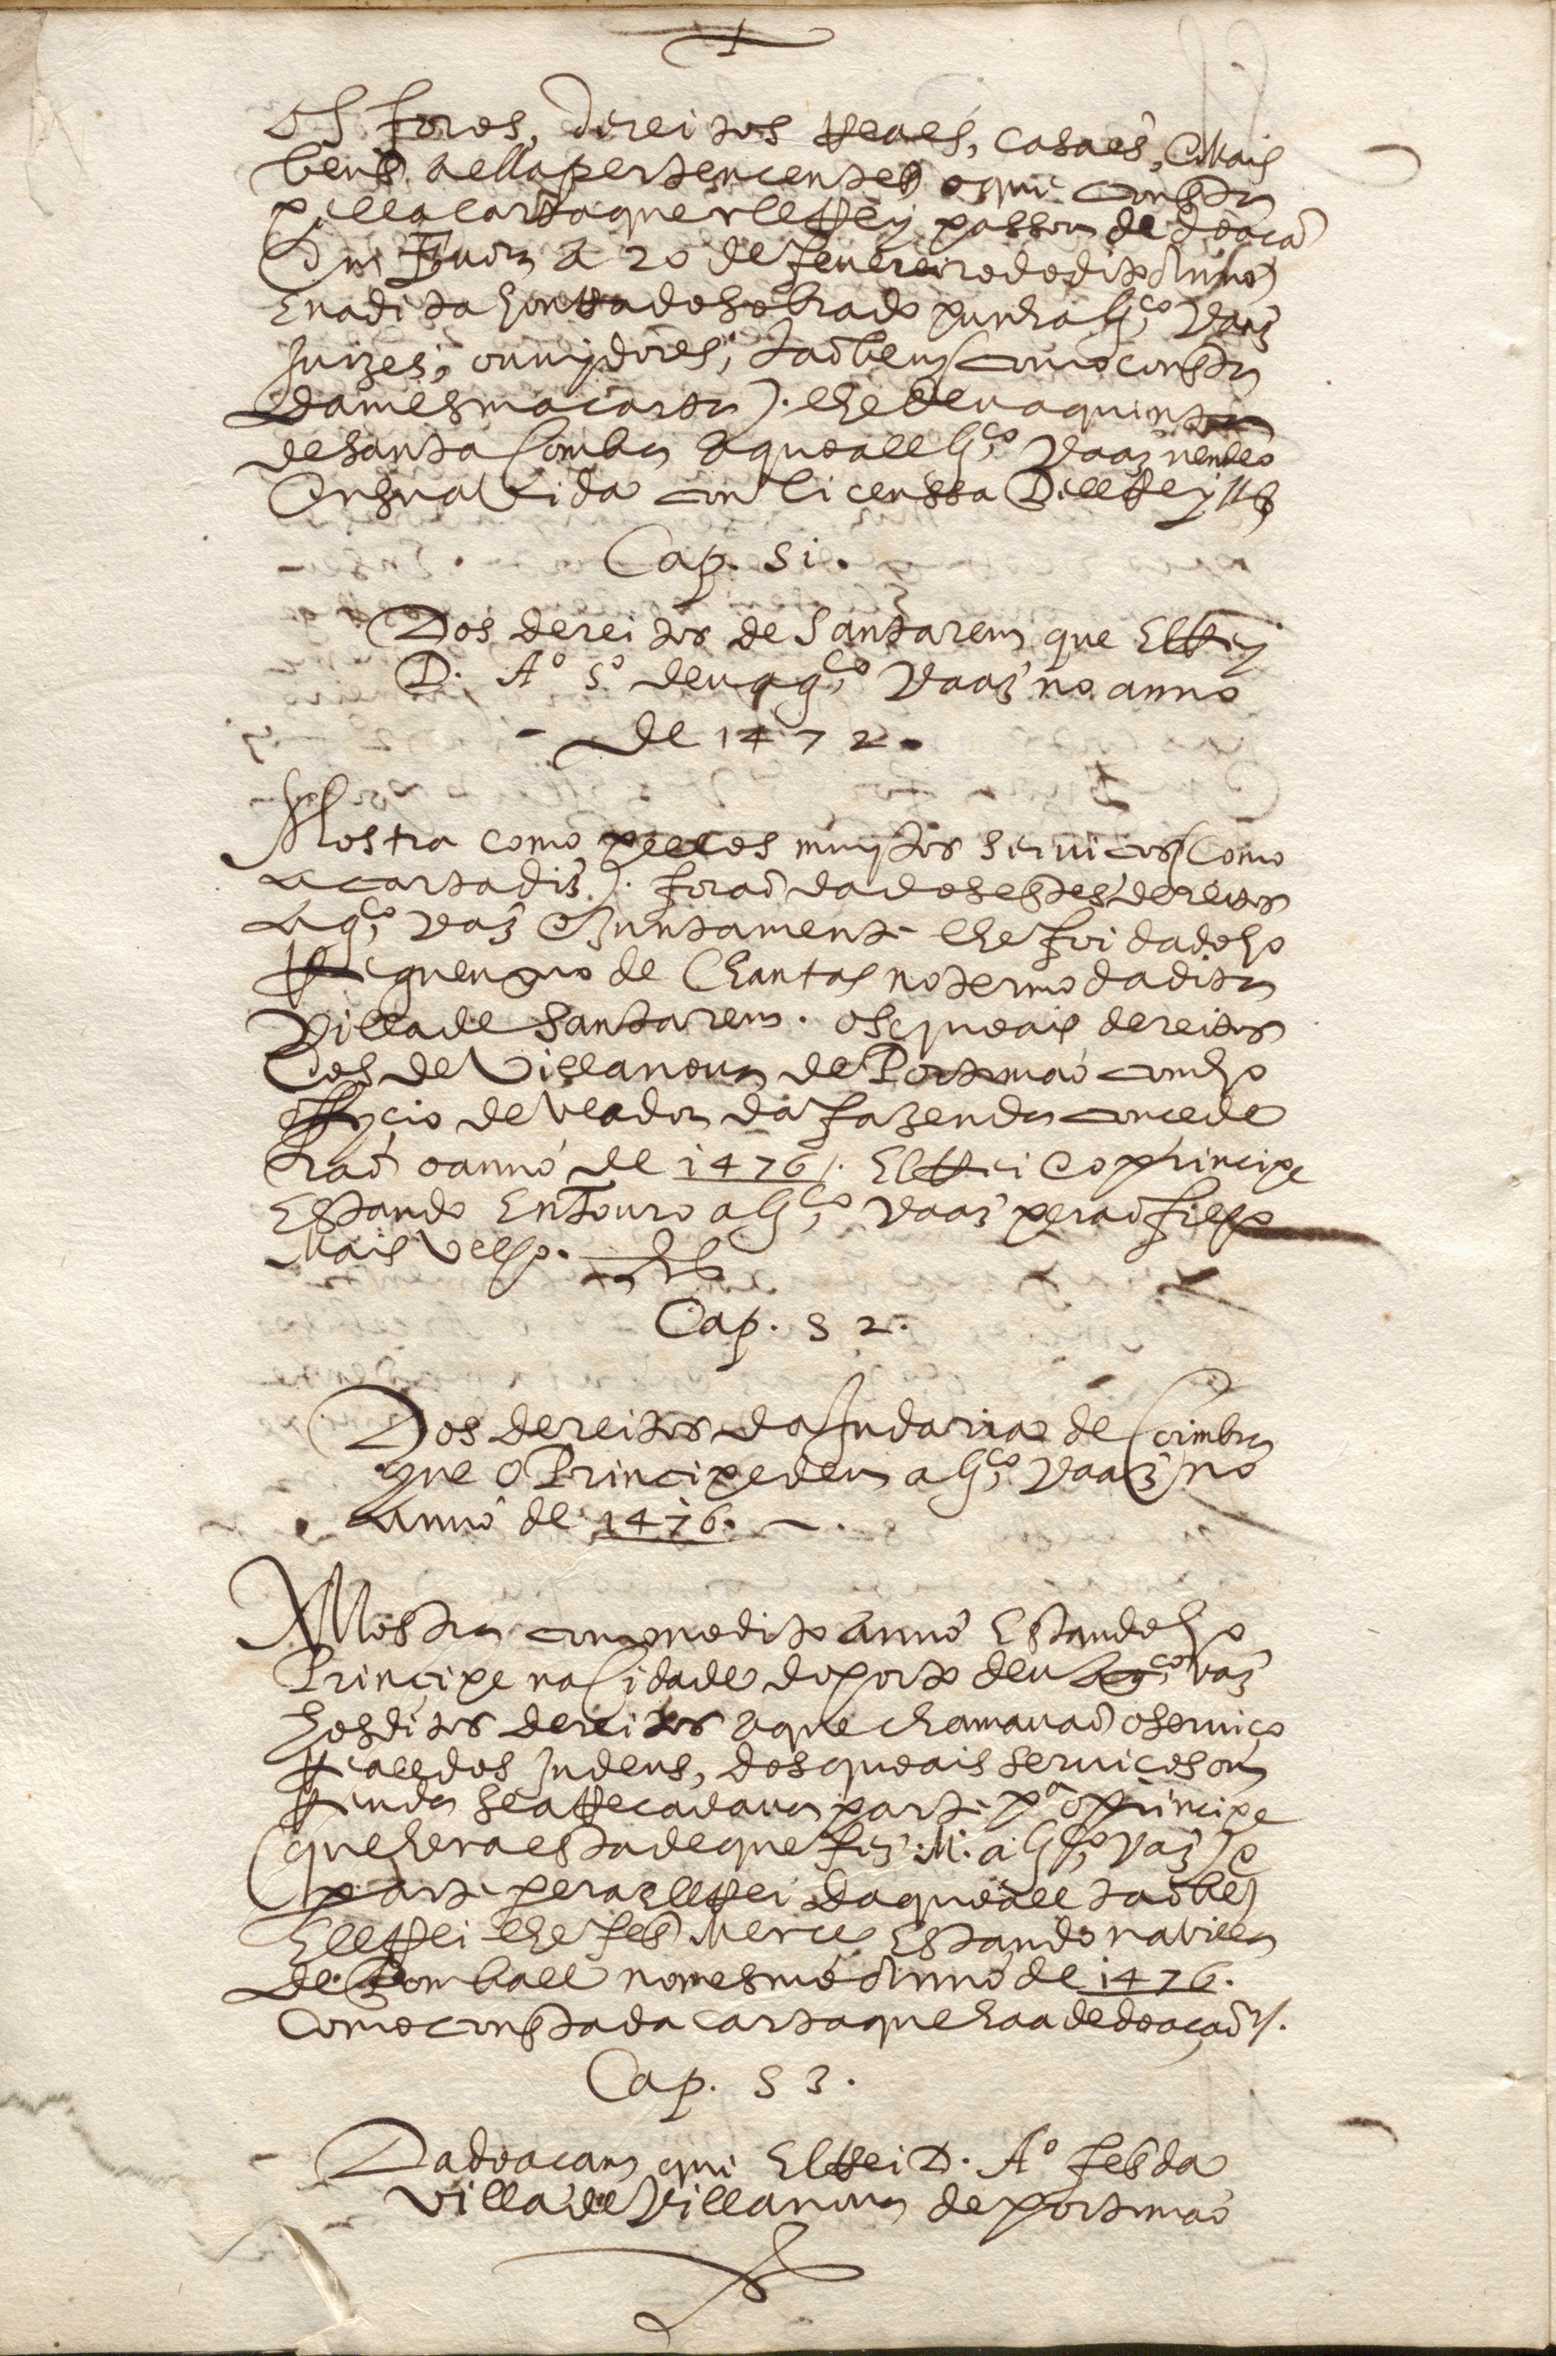 os foros, direitos Reaes, casaes, e Mais
bens a ella pertencentes o que consta
pella carta que elRey passou de doaçaõ
Em Euora a 20 de feuereiro do dito Anno
E na dita honra do sobrado punha G.ço Vaaz
Juizes, ouuydores, taõbem (como consta
da mesma carta). lhe deu a quinta
de santa Comba a quoall G.ço Vaaz uendeo
Em sua Vida com licenssa DellRey
Cap. 51.
Dos dereitos de Santarem que ElRey
D. A.º 5.º deu a g.ço Vaaz no anno
de 1472.
Mostra como pellos muytos seruicos (Como
a carta diz). foraõ dados estes dereitos
a g.ço Vaz E Juntamente lhe foi dado ho
Reguengo de Chantas no termo da dita
Villa de Santarem. os quoais dereitos
E os de Villanoua de Portimaõ com ho
offycio de Veador da fazenda concede
raõ o anno de 1476. ElRei E o principe
Estando En Touro a G.ço Vaaz pera o filho
Mais Velho.
Cap. 52.
Dos dereitos da Judaria de Coimbra
que o Principe deu a G.ço Vaaz no
anno de 1476.
Mostra como no dito anno Estando ho
Principe na Cidade do porto deu a g.ço vaz
hos ditos dereitos a que chamauaõ o seruiço
Reall dos Judeus, dos quoais seruicos ou
Renda se aRecadaua parte p.ª o principe
(que hera esta de que fez M. a G.ço Vaz) e
parte pera ellRei da quoall taõbem
EllRei lhe fes Merce Estando na Villa
de Pomball no mesmo Anno de 1476.
Como consta da carta que ha a de doaçaõ.
Cap. 53.
Da doacam que ElRei D. A.º fes da
Villa de Villanoua de portimaõ